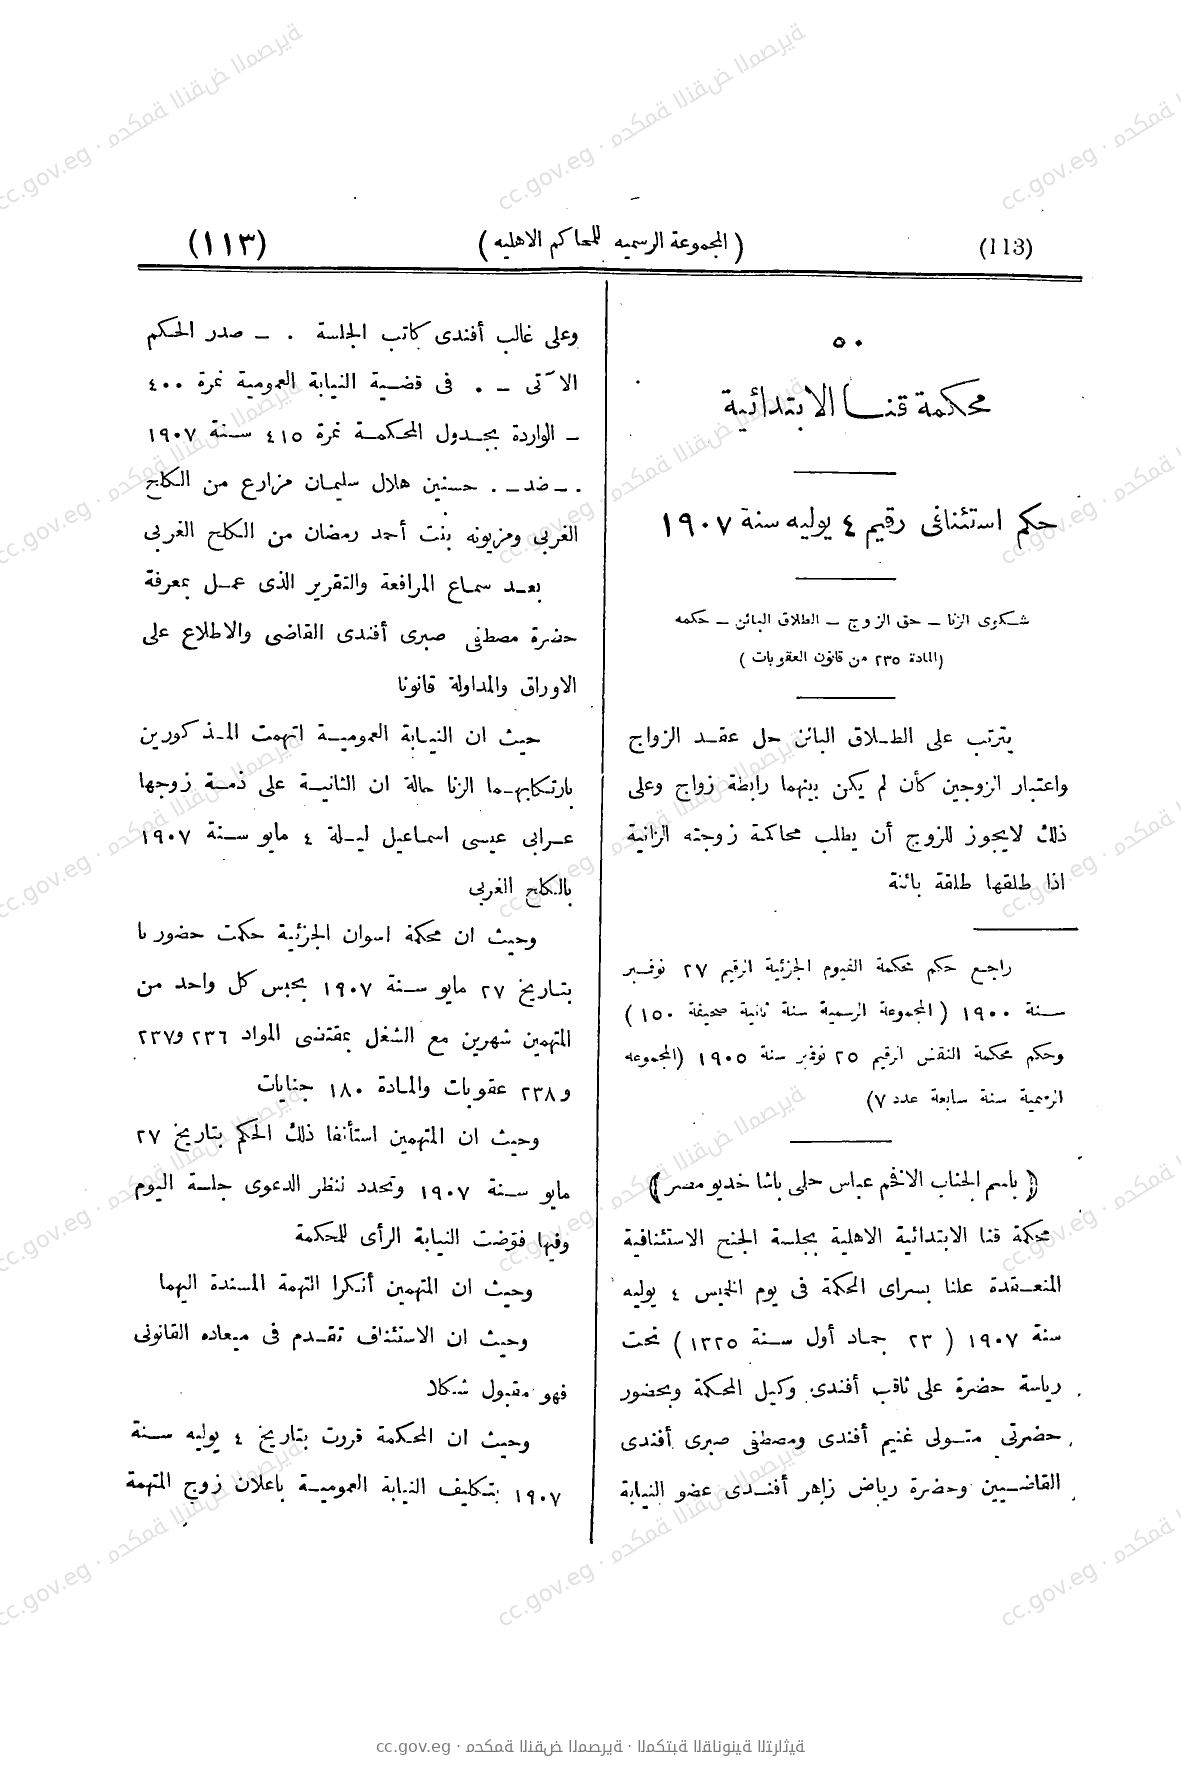 (113)
(المجموعة الرسميه للمحاكم الاهليه)
(١١٣)
٥٠
محكمة قنا الابتدائية
حكم استئنافى رقيم ٤ يوليه سنة ١٩٠٧
شكوى الزنا – حق الزوج – الطلاق البائن – حكمه
(المادة ٢٣٥ من قانون العقوبات)
يترتب على الطلاق البائن حل عقد الزواج
واعتبار الزوجين كأن لم يكن بينهما رابطة زواج وعلى
ذلك لايجوز للزوج أن يطلب محاكمة زوجته الزانية
اذا طلقها طلقة بائنة
راجع حكم محكمة الفيوم الجزئية الرقيم ٢٧ نوفمبر
سنة ١٩٠٠ (المجموعة الرسمية سنة ثانية صحيفة ١٥٠)
وحكم محكمة النقض الرقيم ٢٥ نوفمبر سنة ١٩٠٥ (المجموعه
الرسمية سنة سابعة عدد ٧)
﴿باسم الجناب الافخم عباس حلمى باشا خديو مصر﴾
محكمة قنا الابتدائية الاهلية بجلسة الجنح الاستئنافية
المنعقدة علنا بسراى المحكمة فى يوم الخميس ٤ يوليه
سنة ١٩٠٧ (٢٣ جماد أول سنة ١٣٢٥) تحت
رياسة حضرة على ثاقب أفندى وكيل المحكمة وبحضور
حضرتى متولى غنيم أفندى ومصطفى صبرى أفندى
القاضيين وحضرة رياض زاهر أفندى عضو النيابة
وعلى غالب أفندى كاتب الجلسة . – صدر الحكم
الآتى – . فى قضية النيابة العمومية نمرة ٤٠٠
– الواردة بجدول المحكمة نمرة ٤١٥ سنة ١٩٠٧
. – ضد – . حسنين هلال سليمان مزارع من الكلح
الغربى ومزيونه بنت أحمد رمضان من الكلح الغربى
بعد سماع المرافعة والتقرير الذى عمل بمعرفة
حضرة مصطفى صبرى أفندى القاضى والاطلاع على
الاوراق والمداولة قانونا
حيث ان النيابة العمومية اتهمت المذكورين
بارتكابهما الزنا حالة ان الثانية على ذمة زوجها
عرابى عيسى اسماعيل ليلة ٤ مايو سنة ١٩٠٧
بالكلح الغربى
وحيث ان محكمة اسوان الجزئية حكمت حضوريا
بتاريخ ٢٧ مايو سنة ١٩٠٧ بحبس كل واحد من
المتهمين شهرين مع الشغل بمقتضى المواد ٢٣٦ و٢٣٧
و ٢٣٨ عقوبات والمادة ١٨٠ جنايات
وحيث ان المتهمين استأنفا ذلك الحكم بتاريخ ٢٧
مايو سنة ١٩٠٧ وتحدد لنظر الدعوى جلسة اليوم
وفيها فوّضت النيابة الرأى للمحكمة
وحيث ان المتهمين أنكرا التهمة المسندة اليهما
وحيث ان الاستئناف تقدم فى ميعاده القانونى
فهو مقبول شكلا
وحيث ان المحكمة قررت بتاريخ ٤ يوليه سنة
١٩٠٧ بتكليف النيابة العمومية باعلان زوج المتهمة
cc.gov.eg · محكمة النقض المصرية · المكتبة القانونية التراثية